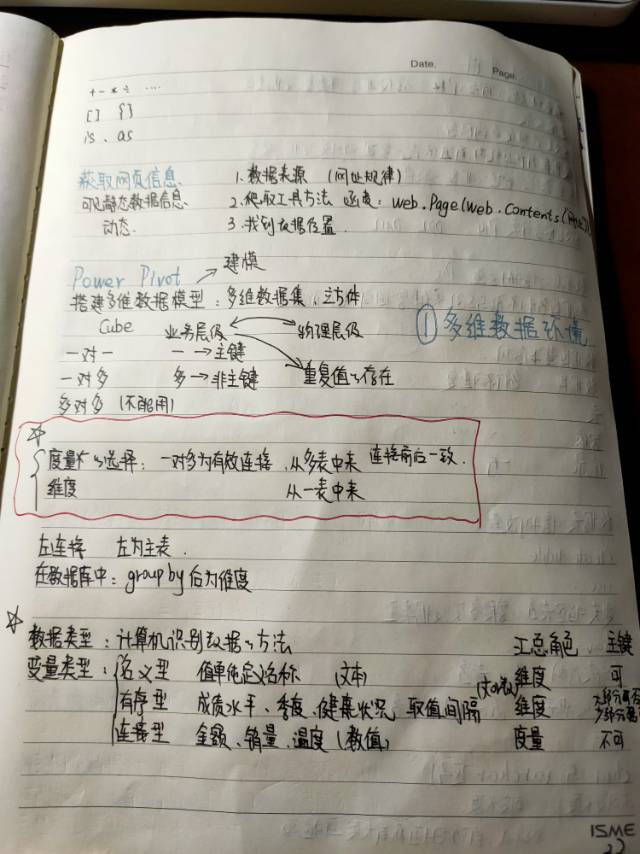 Date. Page.
+ - × ÷ ....
[ ] { }
is、as
获取网页信息、 1.数据来源 (网址规律)
可见静态数据信息 2.爬取工具方法 函数: Web.Page(Web.Contents(
动态. 3.找到数据位置
Power Pivot → 建模
搭建多维数据模型:多维数据集、立方体
Cube 业务层级 物理层级 ①多维数据环境
一对一 一→主键
一对多 多→非主键 重复值 存在
多对多 (不能用)
☆
度量 选择: 一对多为有效连接,从多表中来 连接前后一致.
维度 从一表中来
左连接 左为主表.
在数据库中:group by后为维度
☆
数据类型:计算机识别数据 方法 汇总角色 主键
变量类型: 名义型 值单纯定义名称 (文本) 维度 可
有序型 成绩水平、季度、健康状况 取值间隔 维度
连接型 金额、销量、温度(数值) 度量 不可
ISME